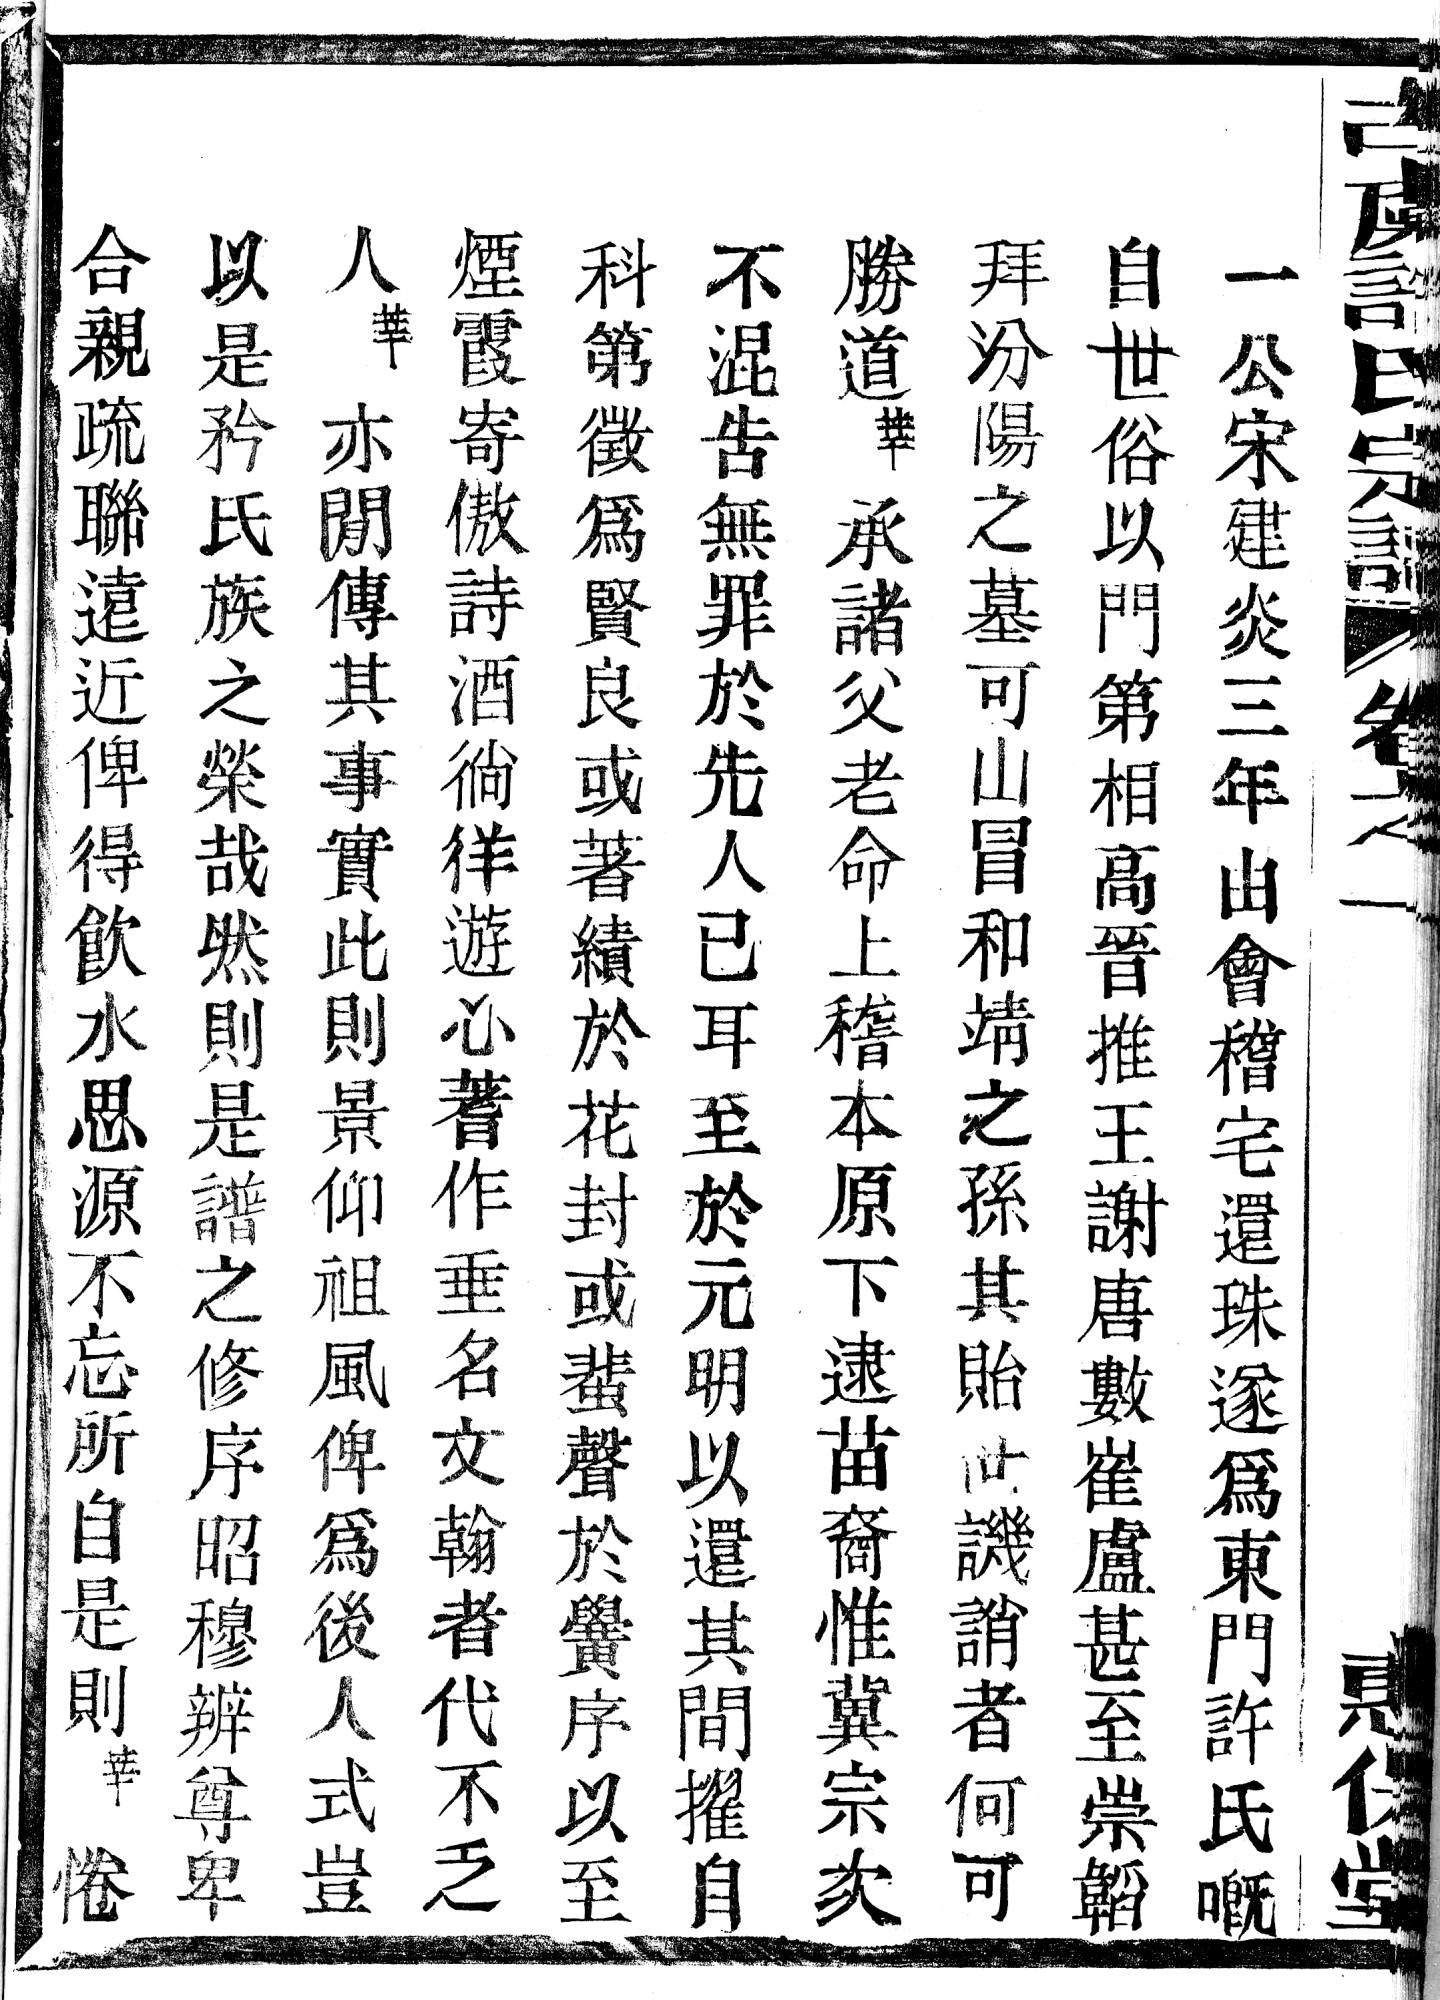 一公宋建炎三年由會稽宅還珠遂爲東門許氏嘅
自世俗以門第相高晉推王謝唐數崔盧甚至崇韜
拜汾陽之墓可山冒和靖之孫其貽世譏誚者何可
勝道華承諸父老命上稽本原下逮苗裔惟冀宗次
不混告無罪於先人已耳至於元明以還其間擢自
科第徵爲賢良或著績於花封或蜚聲於黌序以至
煙霞寄傲詩酒徜徉遊心著作垂名文翰者代不乏
人華亦閒傳其事實此則景仰祖風俾爲後人式豈
以是矜氏族之榮哉然則是譜之修序昭穆辨尊卑
合親疏聯遠近俾得飲水思源不忘所自是則華惓
許氏宗譜
卷之一
堂